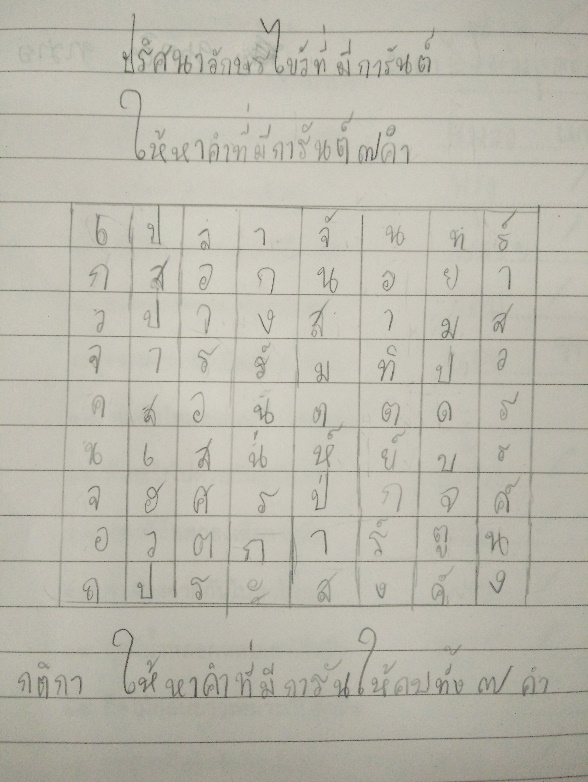 ปริศนาอักษรไขว้ที่มีการันต์
ให้หาคำที่มีการันต์ ๗ คำ
เ ป ล า จั น ท ร์
ก ส อ ก น อ ย า
ว ป า ง สุ า ม ส
จ า ร ร์ ม ทิ ป ว
ค ส อ น ต ต ด ร
น เ ส น่ ห์ ย์ บ ร
จ ฮ ศ ร ป่ ก จ ค์
อ ว ต ก า ร์ ตู น
ถ ป ร ะ ส ง ค์ ง
กติกา ให้หาคำที่มีการันให้คบทั้ง ๗ คำ